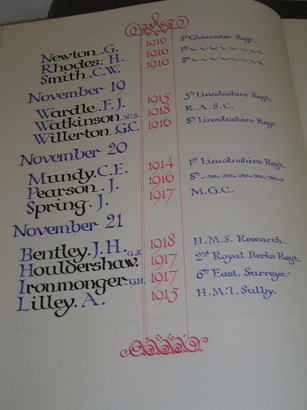 Newton. G. 1916 8th Gloucester Regt.
Rhodes. H. 1916
Smith. C.W. 1916 8th
November 19
Wardle. F.J. 1915 5th Lincolnshire Regt.
Watkinson. W.S. 1918 R.A.S.C.
Willerton. G.C. 1916 8th Lincolnshire Regt.
November 20
Mundy. C.E. 1914 1st Lincolnshire Regt.
Pearson. J. 1916 8th
Spring. J. 1917 M.G.C.
November 21
Bentley. J.H. G.S. 1918 H.M.S. Research.
Houldershaw. 1917 2nd Royal Berks Regt.
Ironmonger. G.H. 1917 6th East. Surreys.
Lilley. A. 1915 H.M.T. Sulby.